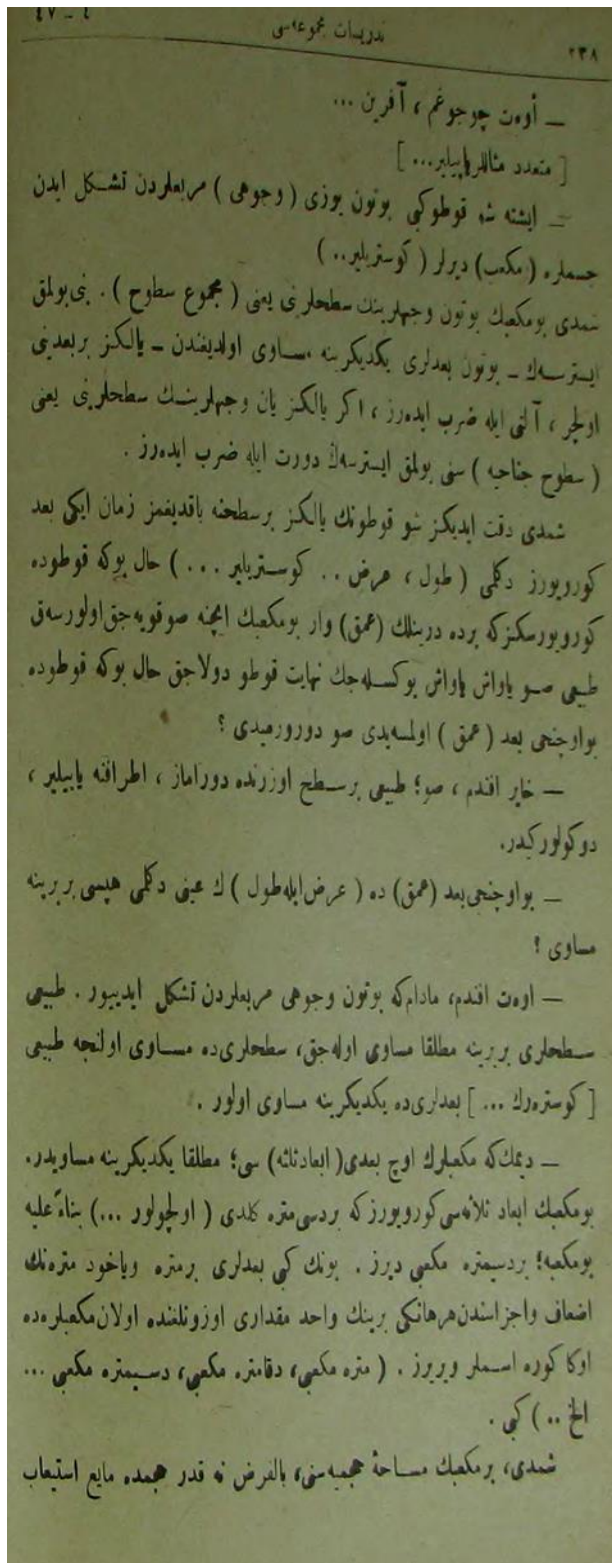 ٤ - ٤٧
تدریسات مجموعه‌سی
٢٣٨
— أوەت چوجوغم ، آفرین ...
[ متعدد مثاللر یاپیلیر... ]
— ایشته شو قوطو کبی بوتون یوزی ( وجوهی ) مربعلردن تشـکل ایدن
جسملره ( مکعب ) دیرلر ( کوستریلیر.. )
شمدی بومکعبك بوتون وجهلرینك سطحلرینی یعنی ( مجموع سطوح ) . نی بولمق
ایسترسه‌ك ـ بوتون بعدلری یکدیکرینه مساوی اولدیغندن ـ یالکز بربعدینی
اولچر ، آلتی ایله ضرب ایده‌رز ، اکر یالکز یان وجهلرینـك سطحلرینی یعنی
( سطوح جناحیه ) سنی بولمق ایسترسه‌ك دورت ایله ضرب ایده‌رز .
شمدی دقت ایدیکز شو قوطونك یالکز برسطحنه باقدیغمز زمان ایکی بعد
کورویورز دکلمی ( طول ، عرض .. کوستریلیر ... ) حال بوکه قوطوده
کورویورسکزکه برده درینلك (عمق) وار بومکعبك ایچنه صوقویه‌جق اولورسه‌ق
طبیعی صـو یاواش یاواش یوکسله‌جك نهایت قوطو دولاجق حال بوکه قوطوده
بواوچنجی بعد ( عمق ) اولمسه‌یدی صو دورورمیدی ؟
— خایر افندم ، صو؛ طبیعی برسـطح اوزرنده دوراماز ، اطرافنه یاییلیر ،
دوکولور کیدر.
— بواوچنجی بعد (عمق) ده ( عرض ایله طول ) ك عینی دکلمی هپسی بربرینه
مساوی ؟
— اوەت افندم، مادام‌که بوتون وجوهی مربعلردن تشکل ایدییور . طبیعی
سـطحلری بربرینه مطلقا مساوی اوله‌جق، سطحلری‌ده مسـاوی اولنجه طبیعی
[ کوستره‌رك ... ] بعدلری‌ده یکدیکرینه مساوی اولور .
— دیمك‌که مکعبلرك اوچ بعدی( ابعادثلثه) سی؛ مطلقا یکدیکرینه مساویدر.
بومکعبك ابعاد ثلاثه‌سی کورویورزکه بردسی‌متره کلدی ( اولچولور ...) بناءً علیه
بومکعبه؛ بردسیمتره مکعبی دیرز . بونك کبی بعدلری برمتره ویاخود متره‌نك
اضعاف واجزاسندن هرهانکی برینك واحد مقداری اوزونلغنده اولان مکعبلره‌ده
اوکا کوره اسـملر ویریرز . ( متره مکعبی، دقامتره مکعبی، دسـیمتره مکعبی ...
الخ .. ) کبی .
شمدی، برمکعبك مسـاحهٔ حجمیه‌سنی، بالفرض نه قدر حجمده مایع استیعاب